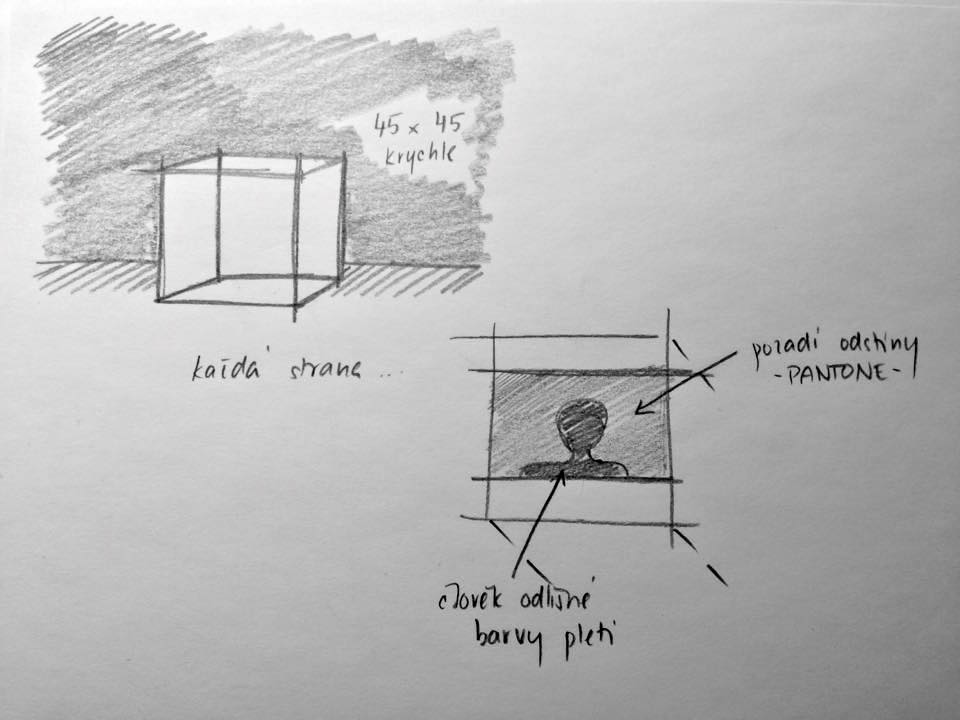 45 x 45
krychle
každá strana ...
pozadí odstíny
-PANTONE-
člověk odlišné
barvy pleti